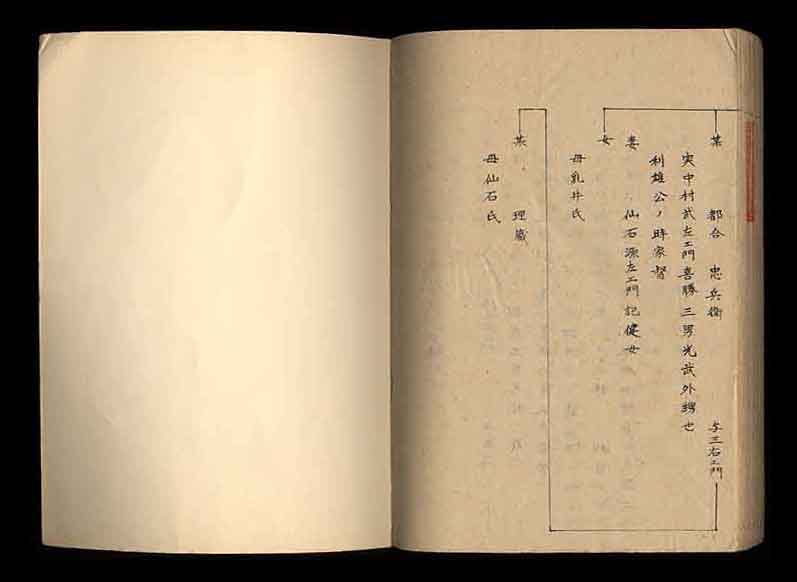 某 都合 忠兵衛 与三右エ門
実中村武左エ門喜勝三男光武外甥也
利雄公ノ時家督
妻 仙石源左エ門記健女
女
母乳井氏
某 理蔵
母仙石氏